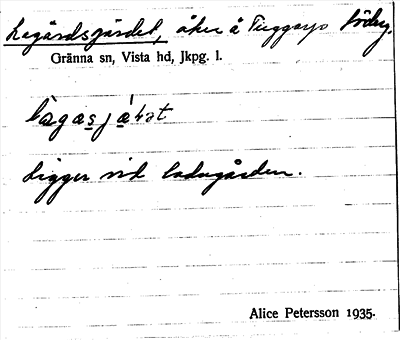 Lagårdsgärdet, åker å Tuggarp Södrg.
Gränna sn, Vista hd, Jkpg. l.
ligger vid ladugården.
Alice Petersson 1935.